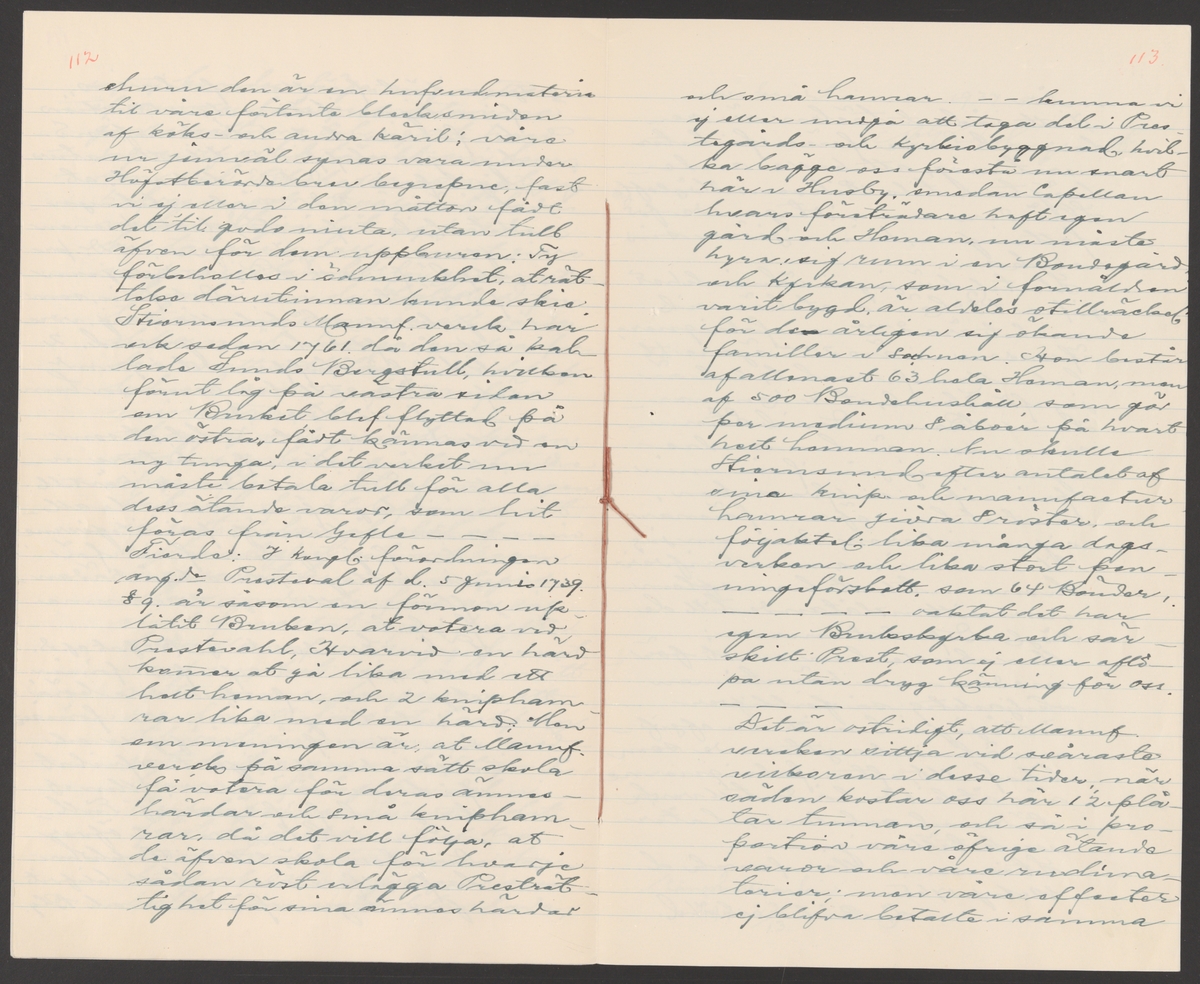 112
ehuru den är en hufvudmateria
til våre förtente blecksmiden
af köks- och andra käril; våre
ur jämväl synas vara under
Högstberörde brev begrepne, fast
vi ej eller i den måtton fådt
det til godo niuta, utan tull
äfven för dem uppburen: Ty
förbehålles i ödmiukhet, at rät-
telse därutinnan kunde skie.
Stiernsunds Manuf. verck har
ock sedan 1761. då den så kal-
lade Lunds Bergstull, hvilken
förut låg på västra sidan
om Bruket blef flyttad på
den östra, fådt kännas vid en
ny tunga, i det verket nu
måste betala tull för alla
dess ätande varor, som hit
föras från Gefle — — — —
Fierde: I Kongl: förordningen
ang.de Presteval af d. 5 Junii 1739.
§ 9. är såsom en förmon up-
låtit Bruken, at votera vid
Prestevahl, Hvarvid en härd
kom̄er at gå lika med ett
helt heman, och 2 knipham-
rar lika med en härd; Men
om meningen är, at Manuf.
verck på samma sätt skola
få votera för deras ämnes-
härdar och små knipham-
rar, då det vill följa, at
de äfven skola för hvarje
sådan röst utlägga Presträt-
tighet för sina ämnes härdar
113.
och små hamrar. — — kunna vi
ej eller undgå att taga del i Pres-
tegårds- och Kyrkiobyggnad, hvil-
ka bägge oss förestå nu snart
här i Husby, medan Capellan
hvars företrädare haft egen
gård och Heman, nu måste
hyra sig rum i en Bondegård,
och Kyrkan, som i fornålden
varit bygd, är aldeles otillräckel:
för de årligen sig ökande
familler i Socknen. Hon består
af allenast 63 hela Heman, men
af 500 Bondehushåll, som gör
per medium 8 åboer på hvart
helt hemman. Nu skulle
Stiernsund efter antalet af
sina knip- och manufactur
hamrar giöra 8 röster, och
följaktel: lika många dags-
verken och lika stort pen-
ningeförskott, som 64 Bönder;
— — — — — oaktat det har
egen Brukskyrka och sär-
skilt Prest, som ej eller aflö-
pa utan dryg känning för oss.
— — — —
Det är ostridigt, att Manuf.
vercken sittja vid svåraste
villkoren i desse tider, när
säden kostar oss här 12 plå-
tar tunnan, och så i pro-
portion våre öfrige ätande
varor och våre rudima-
terier; men våre effecter
ej blifva betalte i samma